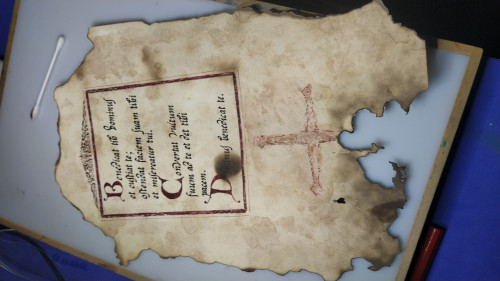 Benedicat tibi Dominus
et custodiat te;
ostendat faciem suam tibi
et misereatur tui.
Convertat vultum
suum ad te et det tibi
pacem.
benedicat te.